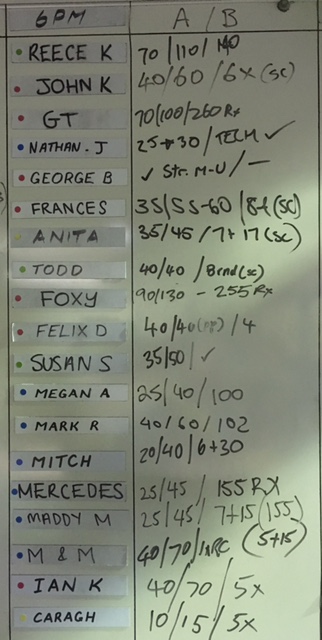 6PM A / B
REECE K 70 / 110 / 140
JOHN K 40/60 / 6x (sc)
GT 70/100/260 Rx
NATHAN. J 25→30 / TECH ✓
GEORGE B ✓ Str. M-U / —
FRANCES 35/55-60 / 8+1 (sc)
ANITA 35/45 / 7+17 (sc)
TODD 40/40 / 8rnd (sc)
FOXY 90/130 - 255 Rx
FELIX D 40/40 (pp) / 4
SUSAN S 35/50 / ✓
MEGAN A 25/40 / 100
MARK R 40/60 / 102
MITCH 20/40 / 6+30
MERCEDES 25/45 / 155 RX
MADDY M 25/45 / 7+15 (155)
M & M 40/70 / (5+15)
IAN K 40/70 / 5x
CARAGH 10/15 / 5x